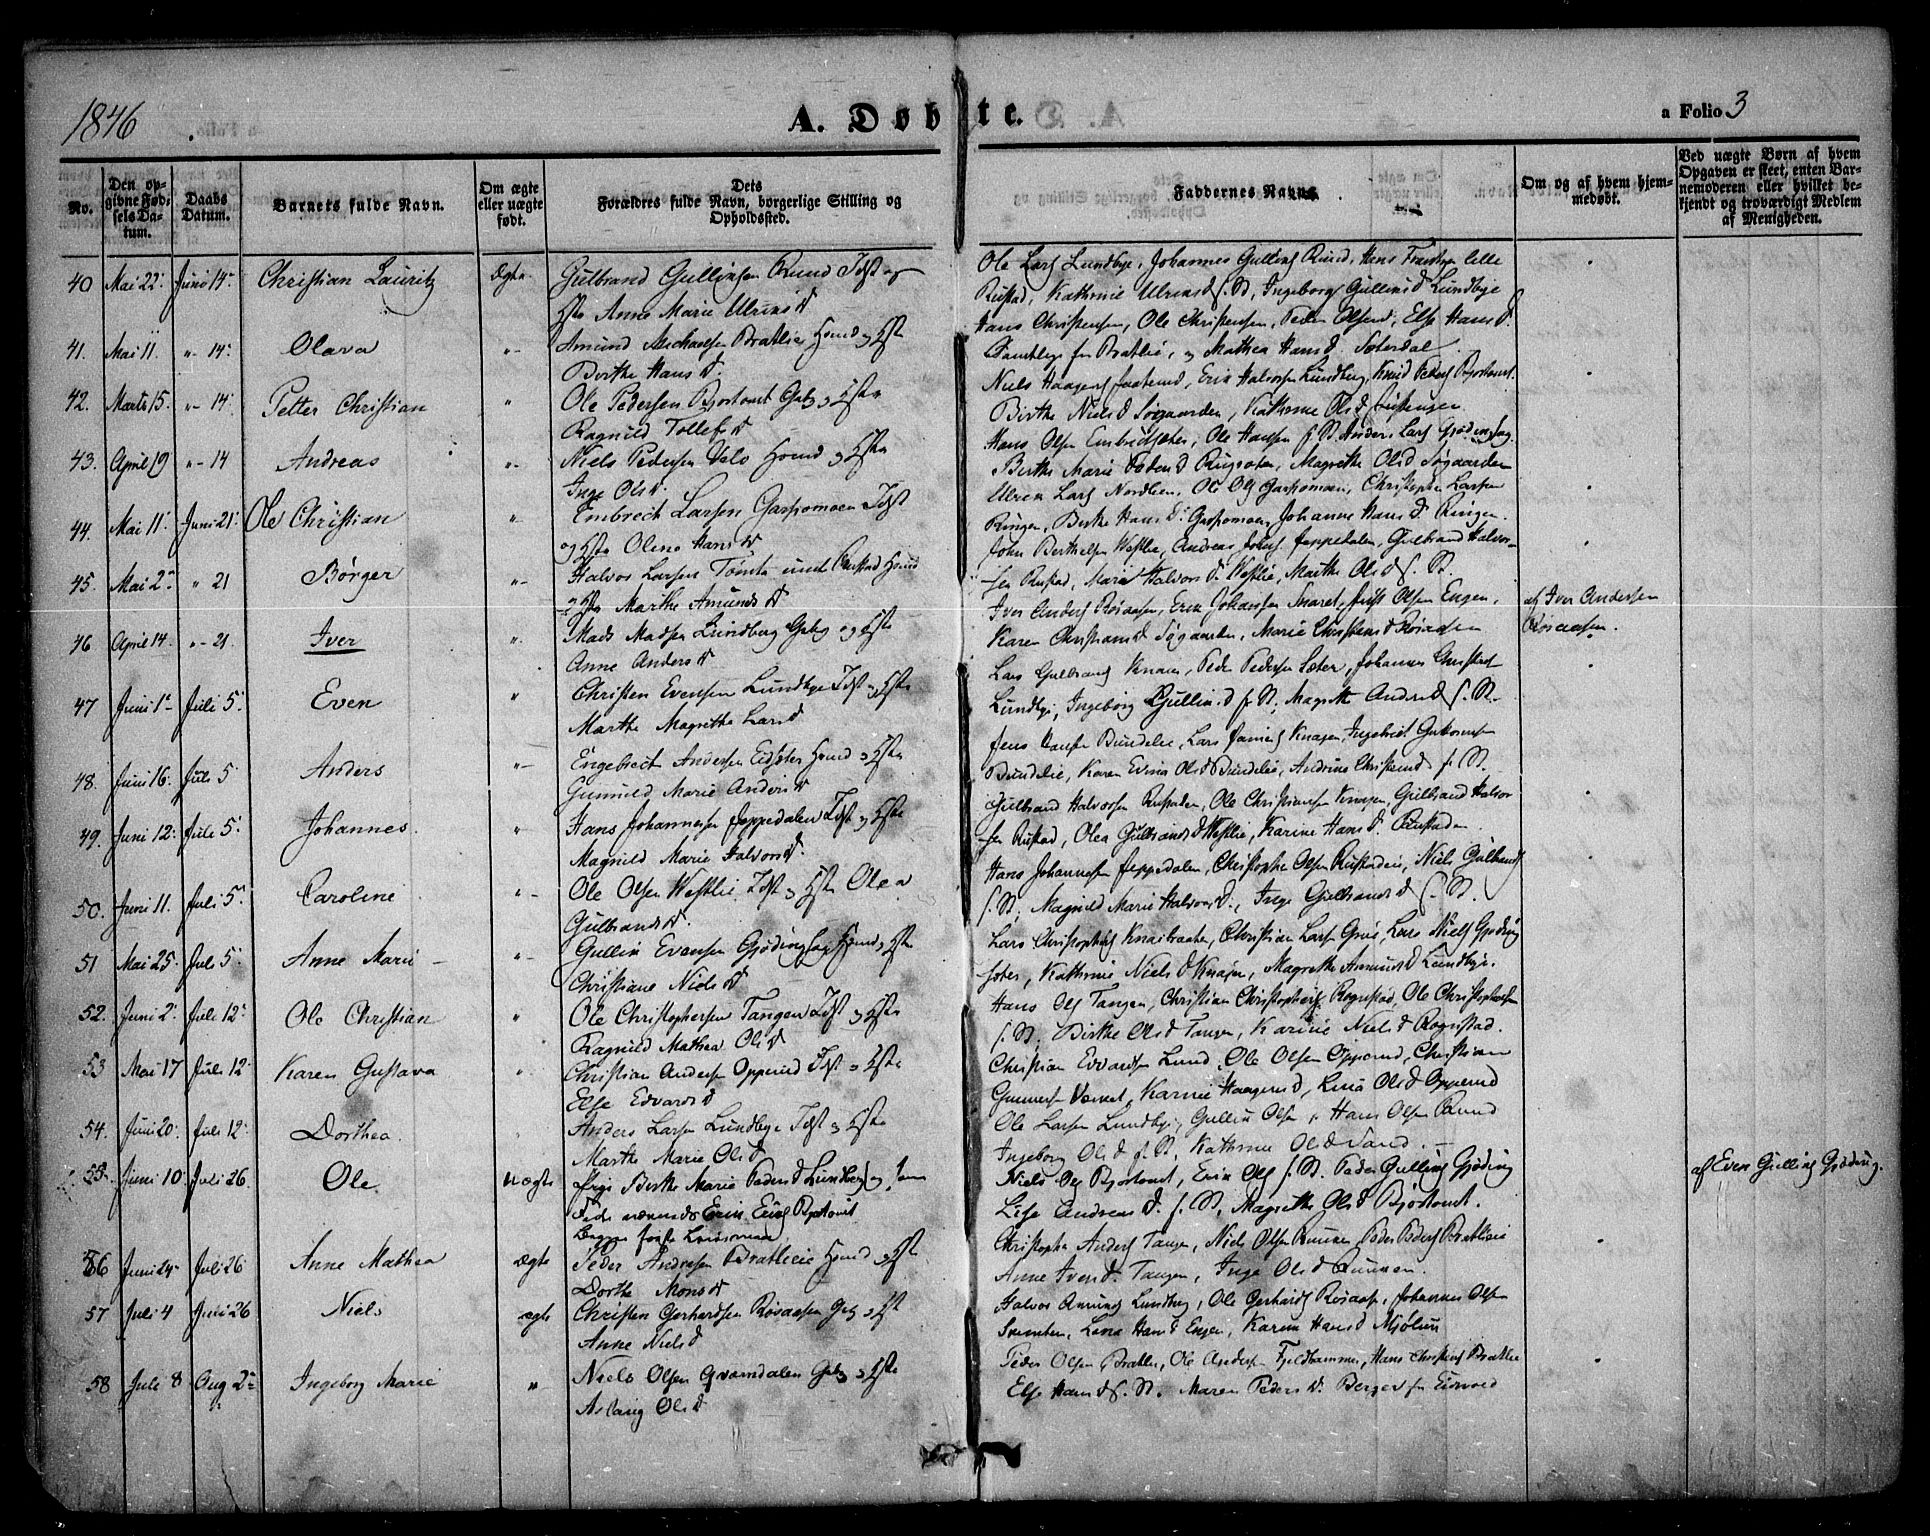 1846
A. Døbte.
a Folio 3
No.
Den opgivne Fødsels Datum.
Daabs Datum.
Barnets fulde Navn.
Om ægte eller uægte født.
Dets Forældres fulde Navn, borgerlige Stilling og Opholdssted.
Faddernes Navne.
Om og af hvem hjemmedøbt.
Ved uægte Børn af hvem Opgaven er skeet, enten Barnemoderen eller hvilket bekjendt og troværdigt Medlem af Menigheden.
40 Mai 22. Juni 14. Christian Lauritz Ægte Gulbrand Gullinsen Ruud Idst og
Hstr Anne Marie Ulrinsd
Ole Lars Lundbye, Johannes Gullins Ruud, Hans
Rustad, Kathrine Ulrinsd f. St, Ingeborg Gullinsd Lundbye
41. Mai 11. "- 14. Olava "- Amund Michaelsen Bratlie Hmd og Hstr
Birthe Hansd.
Hans Christensen, Ole Christensen, Peder Olsen, Else Hansd.
Samtlige fra Bratlie, og Mathea Hansd. Sæterdal
42. Marts 15. "- 14. Petter Christian " Ole Pedersen Bjortomt Gbr og Hstr
Ragnild Tollefsd
Niels Haagens, Erik Halvorsen Lundberg, Knud Peders Bjortomt.
Birthe Nielsd Søgaarden, Kathrine Olsd
43. April 19 "- 14 Andreas "- Niels Pedersen Velo Hmd og Hstr
Inge Olsd.
Hans Olsen Embretsæter, Ole Hansen f. St. Anders Lars Gjødingsag.
Berthe Marie Pedersd, Magrethe Olsd Søgaarden
44. Mai 11. Juni 21. Ole Christian "- Embrech Larsen Gaspomoen Idst
og Hstr Olene Hansd
Ulrik Lars Nordlien, Ole Ols Gaspomoen, Christopher Larsen
Ringen, Berthe Hansd. Gaspomoen, Johanne Hansd Ringen.
45. Mai 2. " 21 Børger "- Halvor Larsen Tomta under Rustad Hmd
og Hstr Marthe Amundsd
John Berthelsen Westlie, Andreas Johns Jeppedalen, Gulbrand Halvor-
sen Rustad, Marie Halvorsd. Westlie, Marthe Olsd f. St.
46 April 14. "- 21. Iver ". Mads Madsen Lundberg Gbr og Hstr
Anne Andersd
Iver Anders Rosaasen, Erik Johansen Snaret, Olsen Engen,
Karen Christiansd Søgaarden, Marie Christensd Rosaasen
af Iver Andersen
Rosaasen.
47 Juni 1. Juli 5. Even " Christen Evensen Lundbye Idst og Hstr
Marthe Magrethe Larsd
Lars Gulbrands Knaien, Peder Pedersen Sæter, Johannes
Lundbye, Ingeborg Gullinsd f. St, Magrethe Andersd f. St.
48. Juni 16. Juli 5 Anders "- Engebrect Andersen Hmd og Hstr
Gunnild Marie Andersd
Jens Bundelie, Lars Knaien, Ingebret
Bundelie, Karen Evine Olsd Bundelie, Andrine Christensd f. St.
49. Juni 12. Juli 5. Johannes. " Hans Johannesen Jeppedalen Idst og Hstr
Magnild Marie Halvorsd.
Gulbrand Halvorsen Rustaden, Ole Christiansen Knaien, Gulbrand Halvor
sen Rustad, Olea Gulbransd Westlie, Karine Hansd. Rustaden
50. Juni 11. Juli 5. Caroline "- Ole Olsen Westlie Idst og Hstr Olea
Gulbransd.
Hans Johannesen Jeppedalen, Christopher Olsen Rustadeie, Niels Gulbrands
f. St, Magnild Marie Halvorsd., Inge Gulbransd f. St.
51 Mai 25. Juli 5. Anne Marie "- Gullin Evensen Gjødingsag Hmd og Hstr
Christiane Nielsd
Lars Christophers Knaibraaten, Christian Larsen, Lars Niels Gjøding
Kathrine Nielsd Knaien, Magrethe Amundsd Lundbye.
52. Juni 2. Juli 12. Ole Christian " Ole Christophersen Tangen Idst og Hstr
Ragnild Mathea Olsd
Hans Ols Tangen, Christian Christophers Rognstad, Ole Christophersen
f. St, Birthe Olsd Tangen, Karine Nielsd Rognstad.
53 Mai 17 Juli 12 Karen Gustava " Christian Andersen Opperud Idst og Hstr
Else Edvardsd
Christian Edvardsen Lund, Ole Olsen Opperud, Christian
Karine Haagensd, Lena Olsd Opperud
54. Juni 20. Juli 12. Dorthea. Anders Larsen Lundbye Idst og Hstr
Marthe Marie Olsd
Ole Larsen Lundbye, Gullin Olsen, Hans Olsen Ruud
Ingeborg Olsd f. St, Kathrine Olsd Sand.
55. Juni 10. Juli 26. Ole uægte Pige Birthe Marie Pedersd Lundberg og som
Fader nævnes Erik Eriks Bjortomt
Begges første Leiermaal
Niels Ols Bjortomt, Erik Ols f. St. Peder Gullins Gjøding
Lise Andreasd. f. St, Magrethe Olsd Bjortomt.
af Even Gullins Gjøding.
56 Juni 24 Juli 26 Anne Mathea ægte Peder Andersen Bratlieie Hmd og Hstr
Dorthe Monsd
Christopher Anders Tangen, Niels Olsen, Peder Peders Bratlieie
Anne Iversd. Tangen, Inge Olsd
57 Juli 4 Juni 26 Niels ægte Christen Gerhardsen Rosaasen Gbr og Hst
Anne Nielsd
Halvor Amunds Lundberg, Ole Gerhards Rosaasen, Johannes Olsen
Lena Hansd Engen, Karen Hansd Mjølnu
58 Juli 8 Aug 2. Ingeborg Marie " Niels Olsen Gvamdalen Gbr og Hstr
Aslaug Olsd
Peder Olsen Bratlie, Ole Andersen Fjeldhammer, Hans Christens Bratlie
Else Hansd f. St. Maren Pedersd. Berger fra Eidsvold